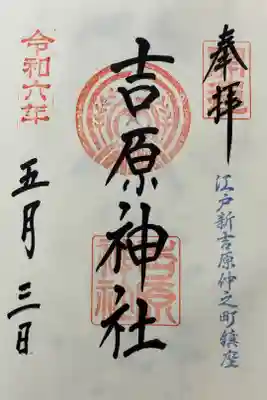 奉拝
江戸新吉原仲之町鎮座
吉原神社
吉原
神社
令和六年
五月三日